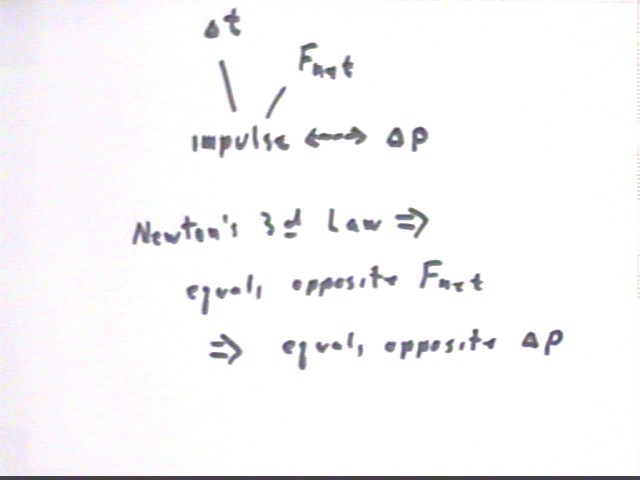 Δt
Fnet
impulse ⟷ Δp
Newton's 3rd Law ⇒
equal, opposite Fnet
⇒ equal, opposite Δp